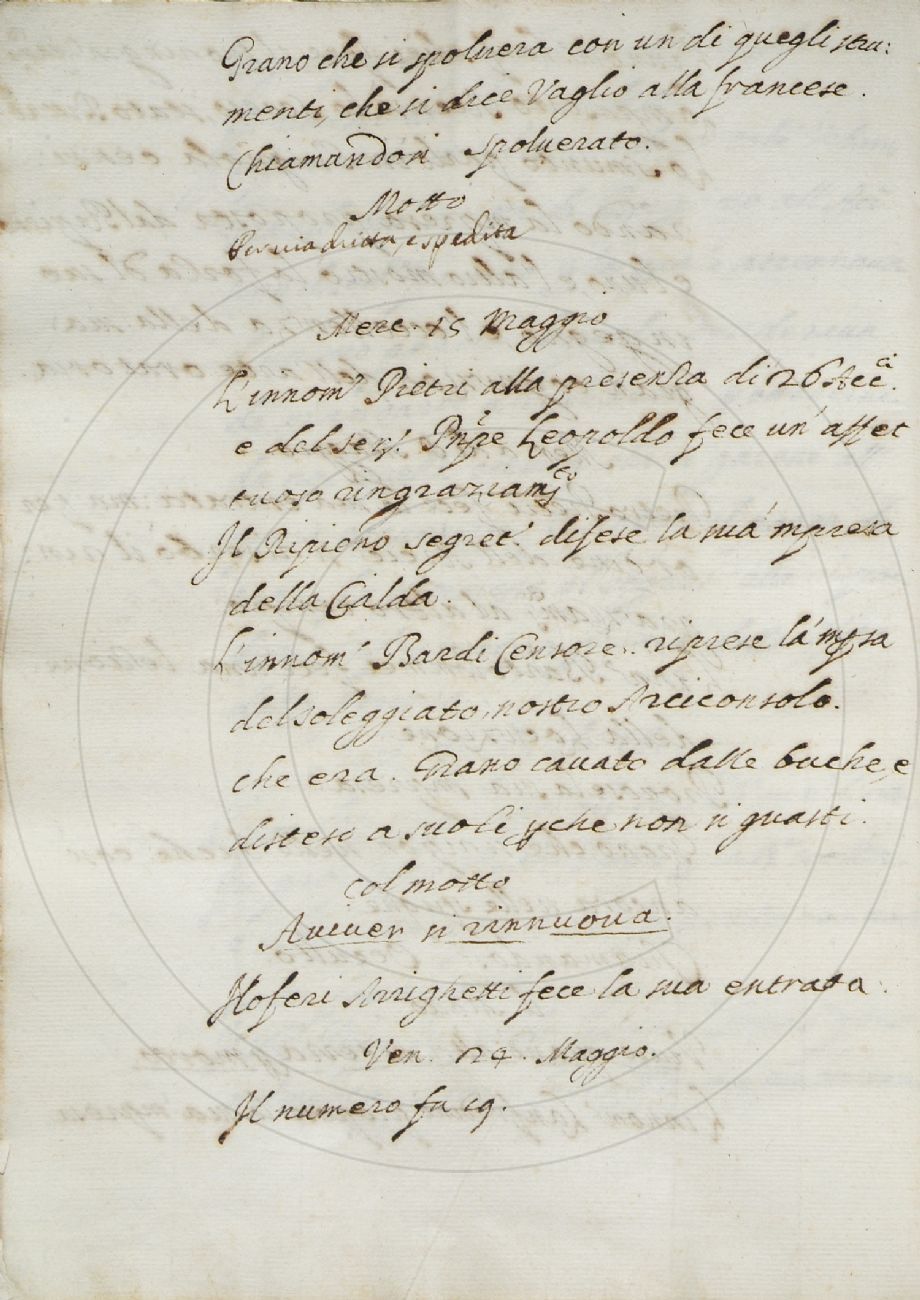 Grano che si spoluera con un di quegli stru:
menti, che si dice Vaglio alla francese.
Chiamandosi spoluerato.
Motto
Per via dritta, e spedita
Mere. 15 Maggio
L'innom.º Pietri alla presenza di 26 Acc.ci
e del Ser. Prīpe Leopoldo fece un' affet
tuoso ringraziam.to
Il Ripieno segret.º difese la sua 'mpresa
della Cialda.
L'innom.º Bardi Censore. riprese la 'mpsa
del soleggiato, nostro Arciconsolo.
che era. Grano cauato dalle buche, e
disteso a suoli pche non si guasti.
col motto
A viver si rinnuova.
Ho feri Arrighetti fece la sua entrata.
Ven. 24. Maggio.
Il numero fu 19.